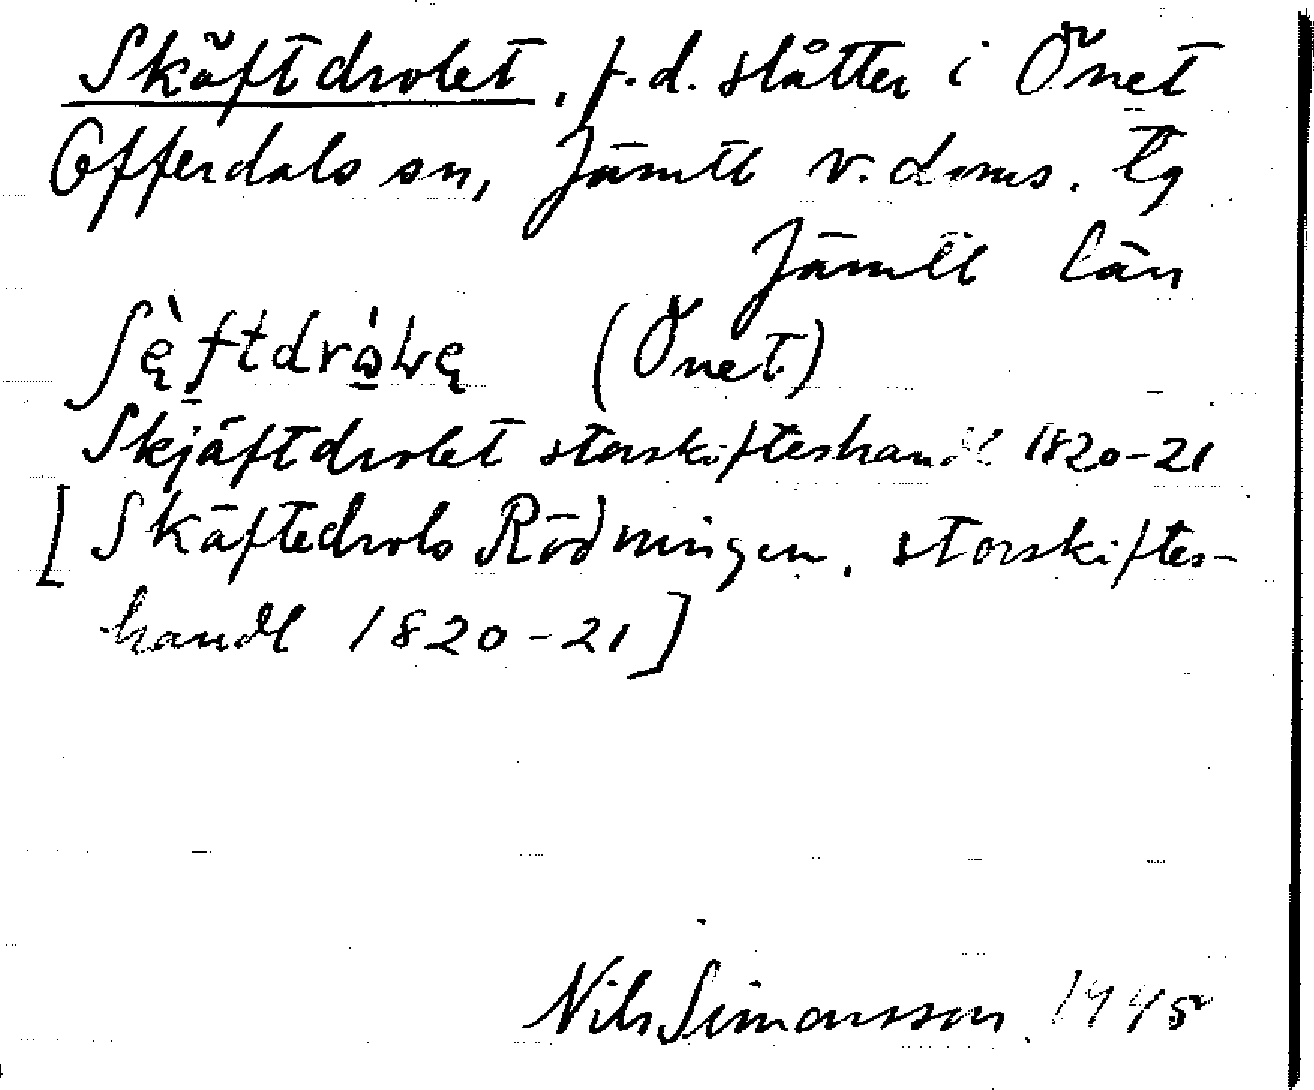 Skäftdrolet, f.d. slåtter i Önet
Offerdals sn, Jämtl v. doms. lg
Jämtl län
(Önet)
Skjäftdrolet storskifteshandl 1820-21
[Skäftedrols Rödningen, storskiftes-
handl 1820-21]
Nils Simonsson 1945